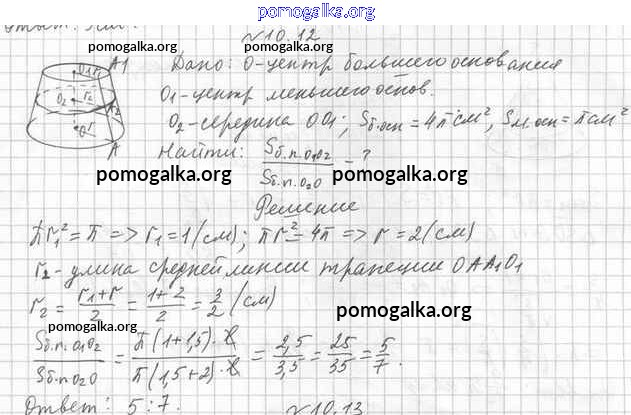 pomogalka.org
Ответ:
№10.12
pomogalka.org
Дано: O-центр большего основания
O1-центр меньшего основ.
O2-середина OO1; Sб.осн=4π см², Sм.осн=π см²
Найти: Sб.п.O1O2 / Sб.п.O2O - ?
O1 r1 A1
O2 r2 A2
O r A
pomogalka.org pomogalka.org
Решение
πr1²=π => r1=1(см); πr²=4π => r=2(см)
r2-длина средней линии трапеции OAA1O1
r2 = (r1+r)/2 = (1+2)/2 = 3/2 (см)
pomogalka.org
pomogalka.org
Sб.п.O1O2 / Sб.п.O2O = π(1+1,5)·ℓ / π(1,5+2)·ℓ = 2,5/3,5 = 25/35 = 5/7.
Ответ: 5:7.
№10.13